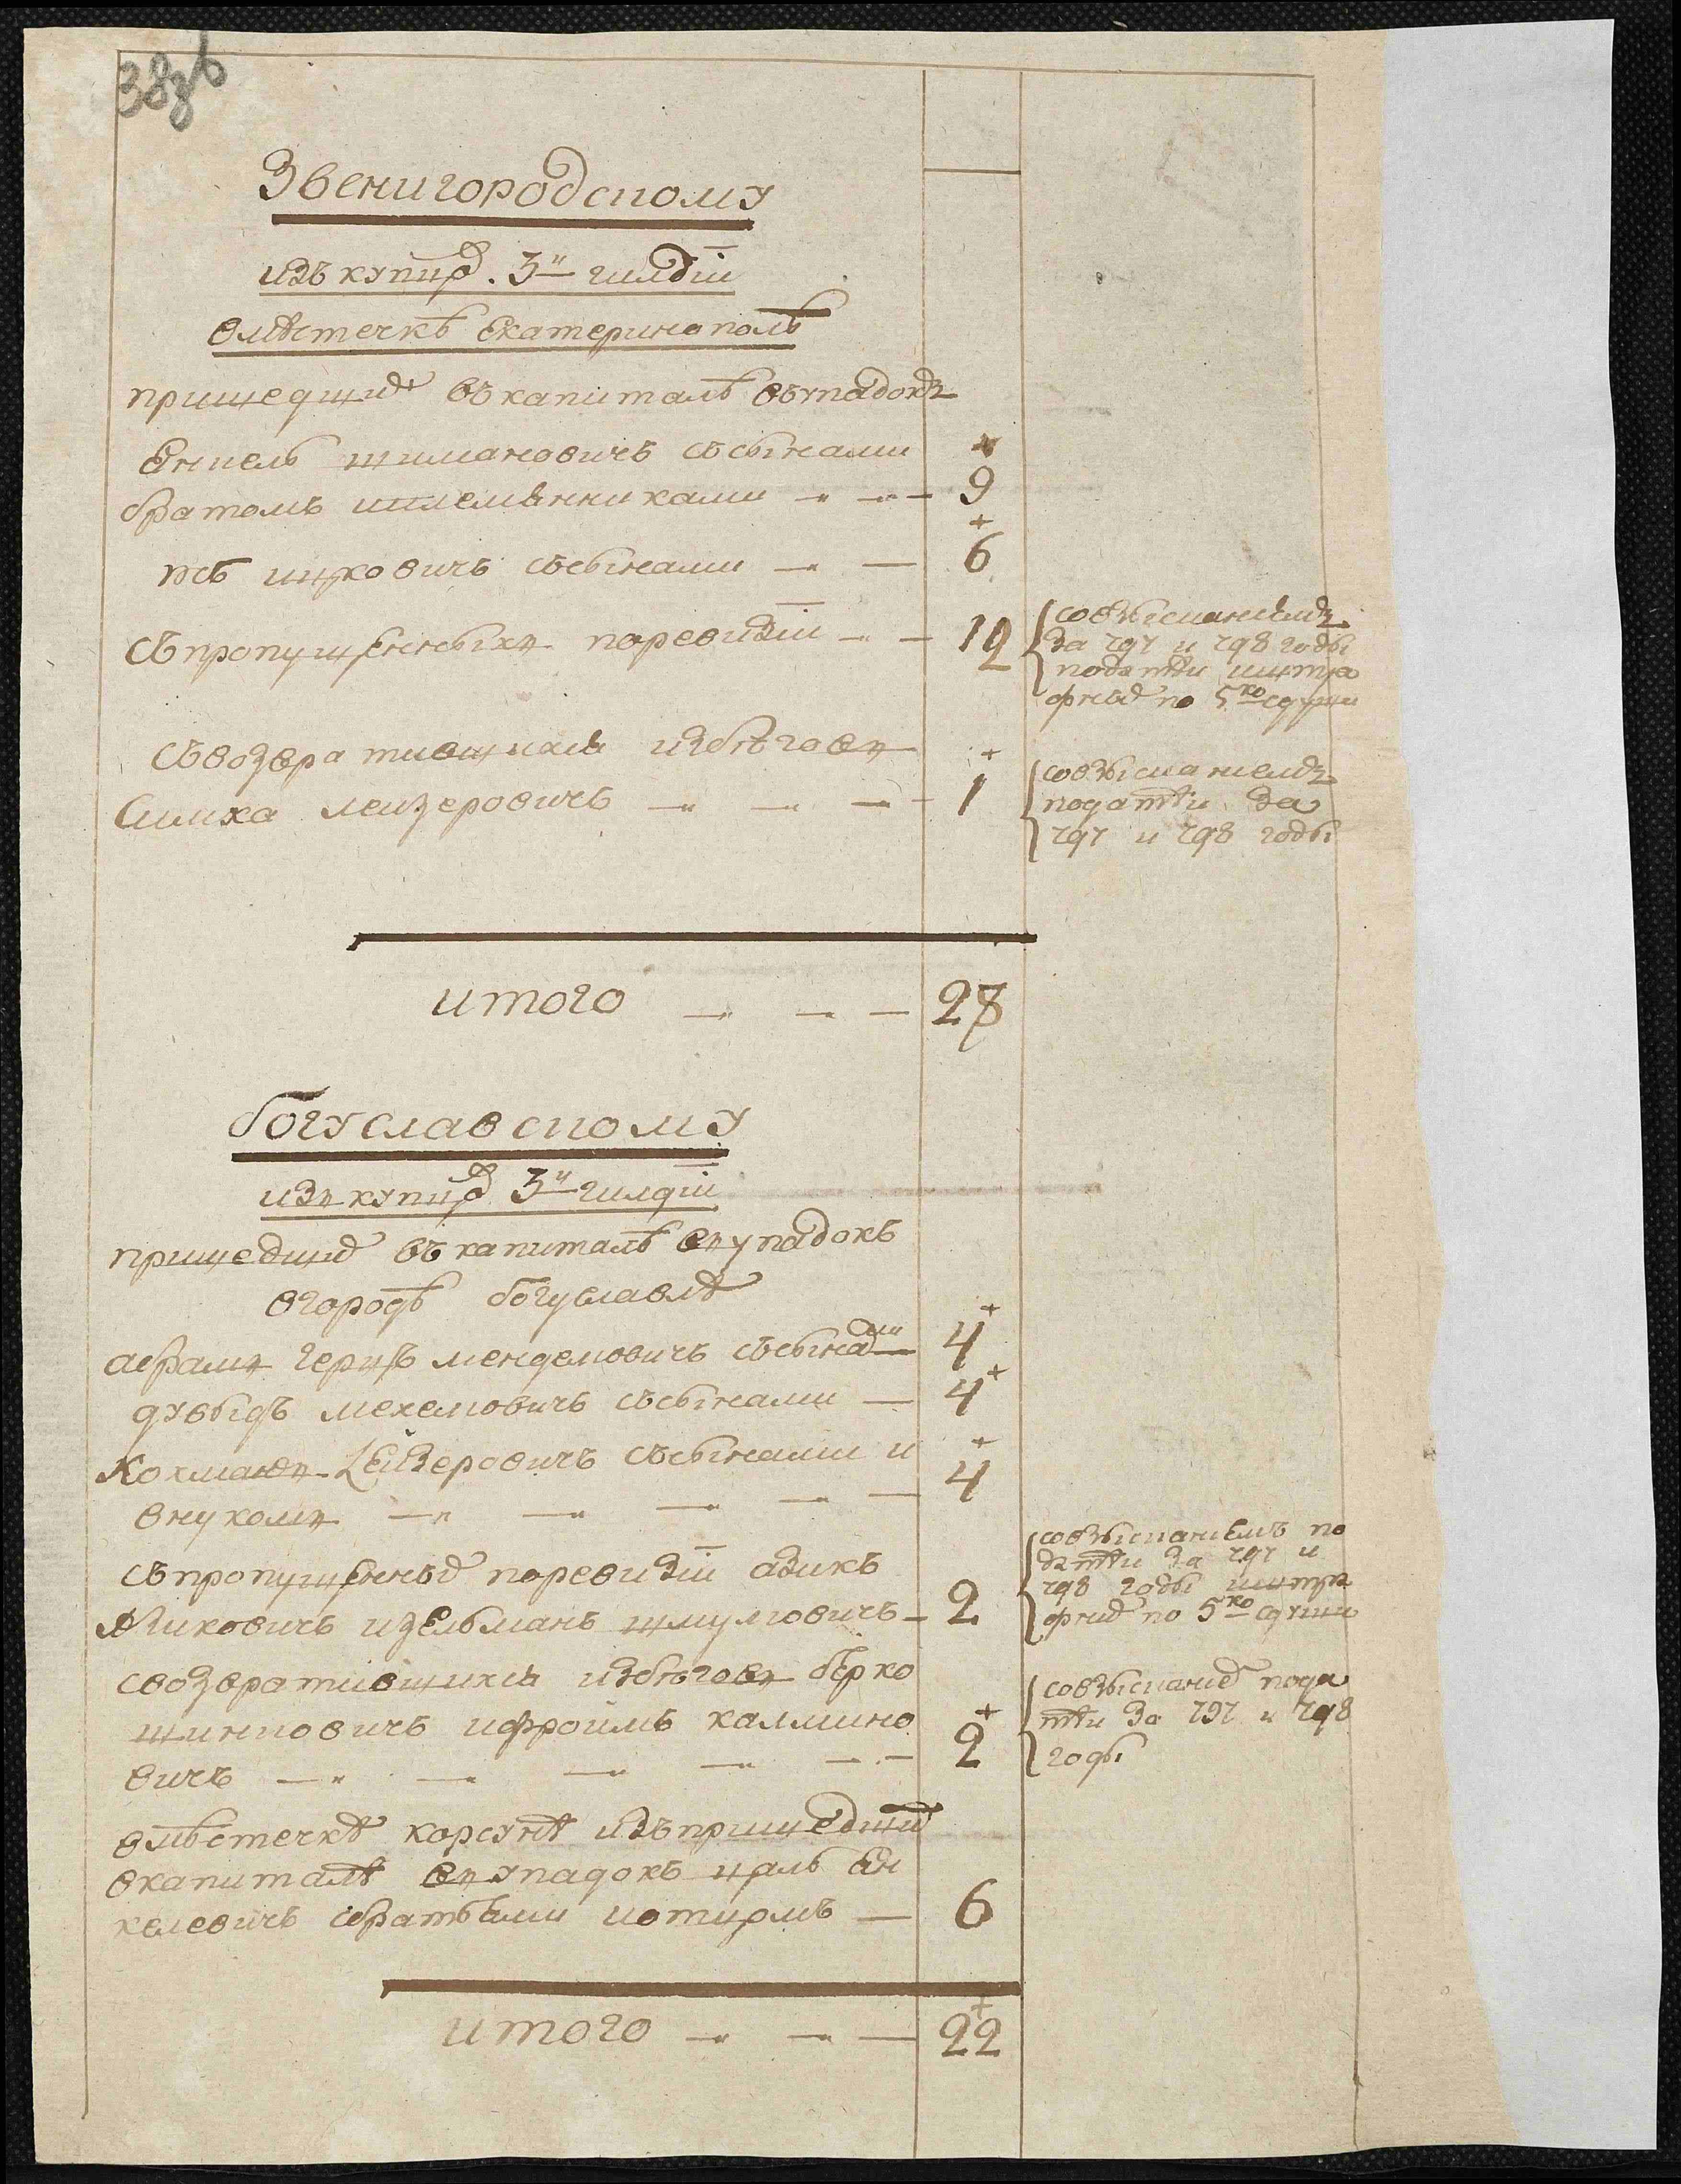 Звенигородскому
изъ купцов. 3й гилдіи
вместечке Екатеринополе
пришедших въ капитале въупадокъ
Енкель шимановичъ съсынами
братомъ иплемянниками 9
ицковичъ съсынами 6
съпропущенныхъ поревизіи 12
совзысканіемъ
за 797 и 798 годы
подати иштра
фных по 5ко сдуши
съвозвратившихся избеговъ
Симха лейзеровичъ 1
совзысканіемъ
подати за
797 и 798 годы
итого 28
богуславскому
изъ купцов 3й гилдіи
пришедших въ капитале въ упадокъ
вгороде богуславле
абрамъ герцъ менделовичъ съсынами 4
дувыдъ мехелювичъ съсынами 4
Колманъ Лейзеровичъ съсынами и
внукомъ 4
съпропущенных поревизіи азикъ
Айзиковичъ изельманъ шмулювичъ 2
совзысканіемъ по
дати за 797 и
798 годы иштра
фных по 5ко сдуши
своз­вратившихся избеговъ берко
шинковичъ ифроимъ калмино
вичъ 2
совзысканіем пода
ти за 797 и 798
годы
вместечке корсуне изъ пришедших
вкапитале въ упадокъ
келевичъ сбратьями 6
итого 22